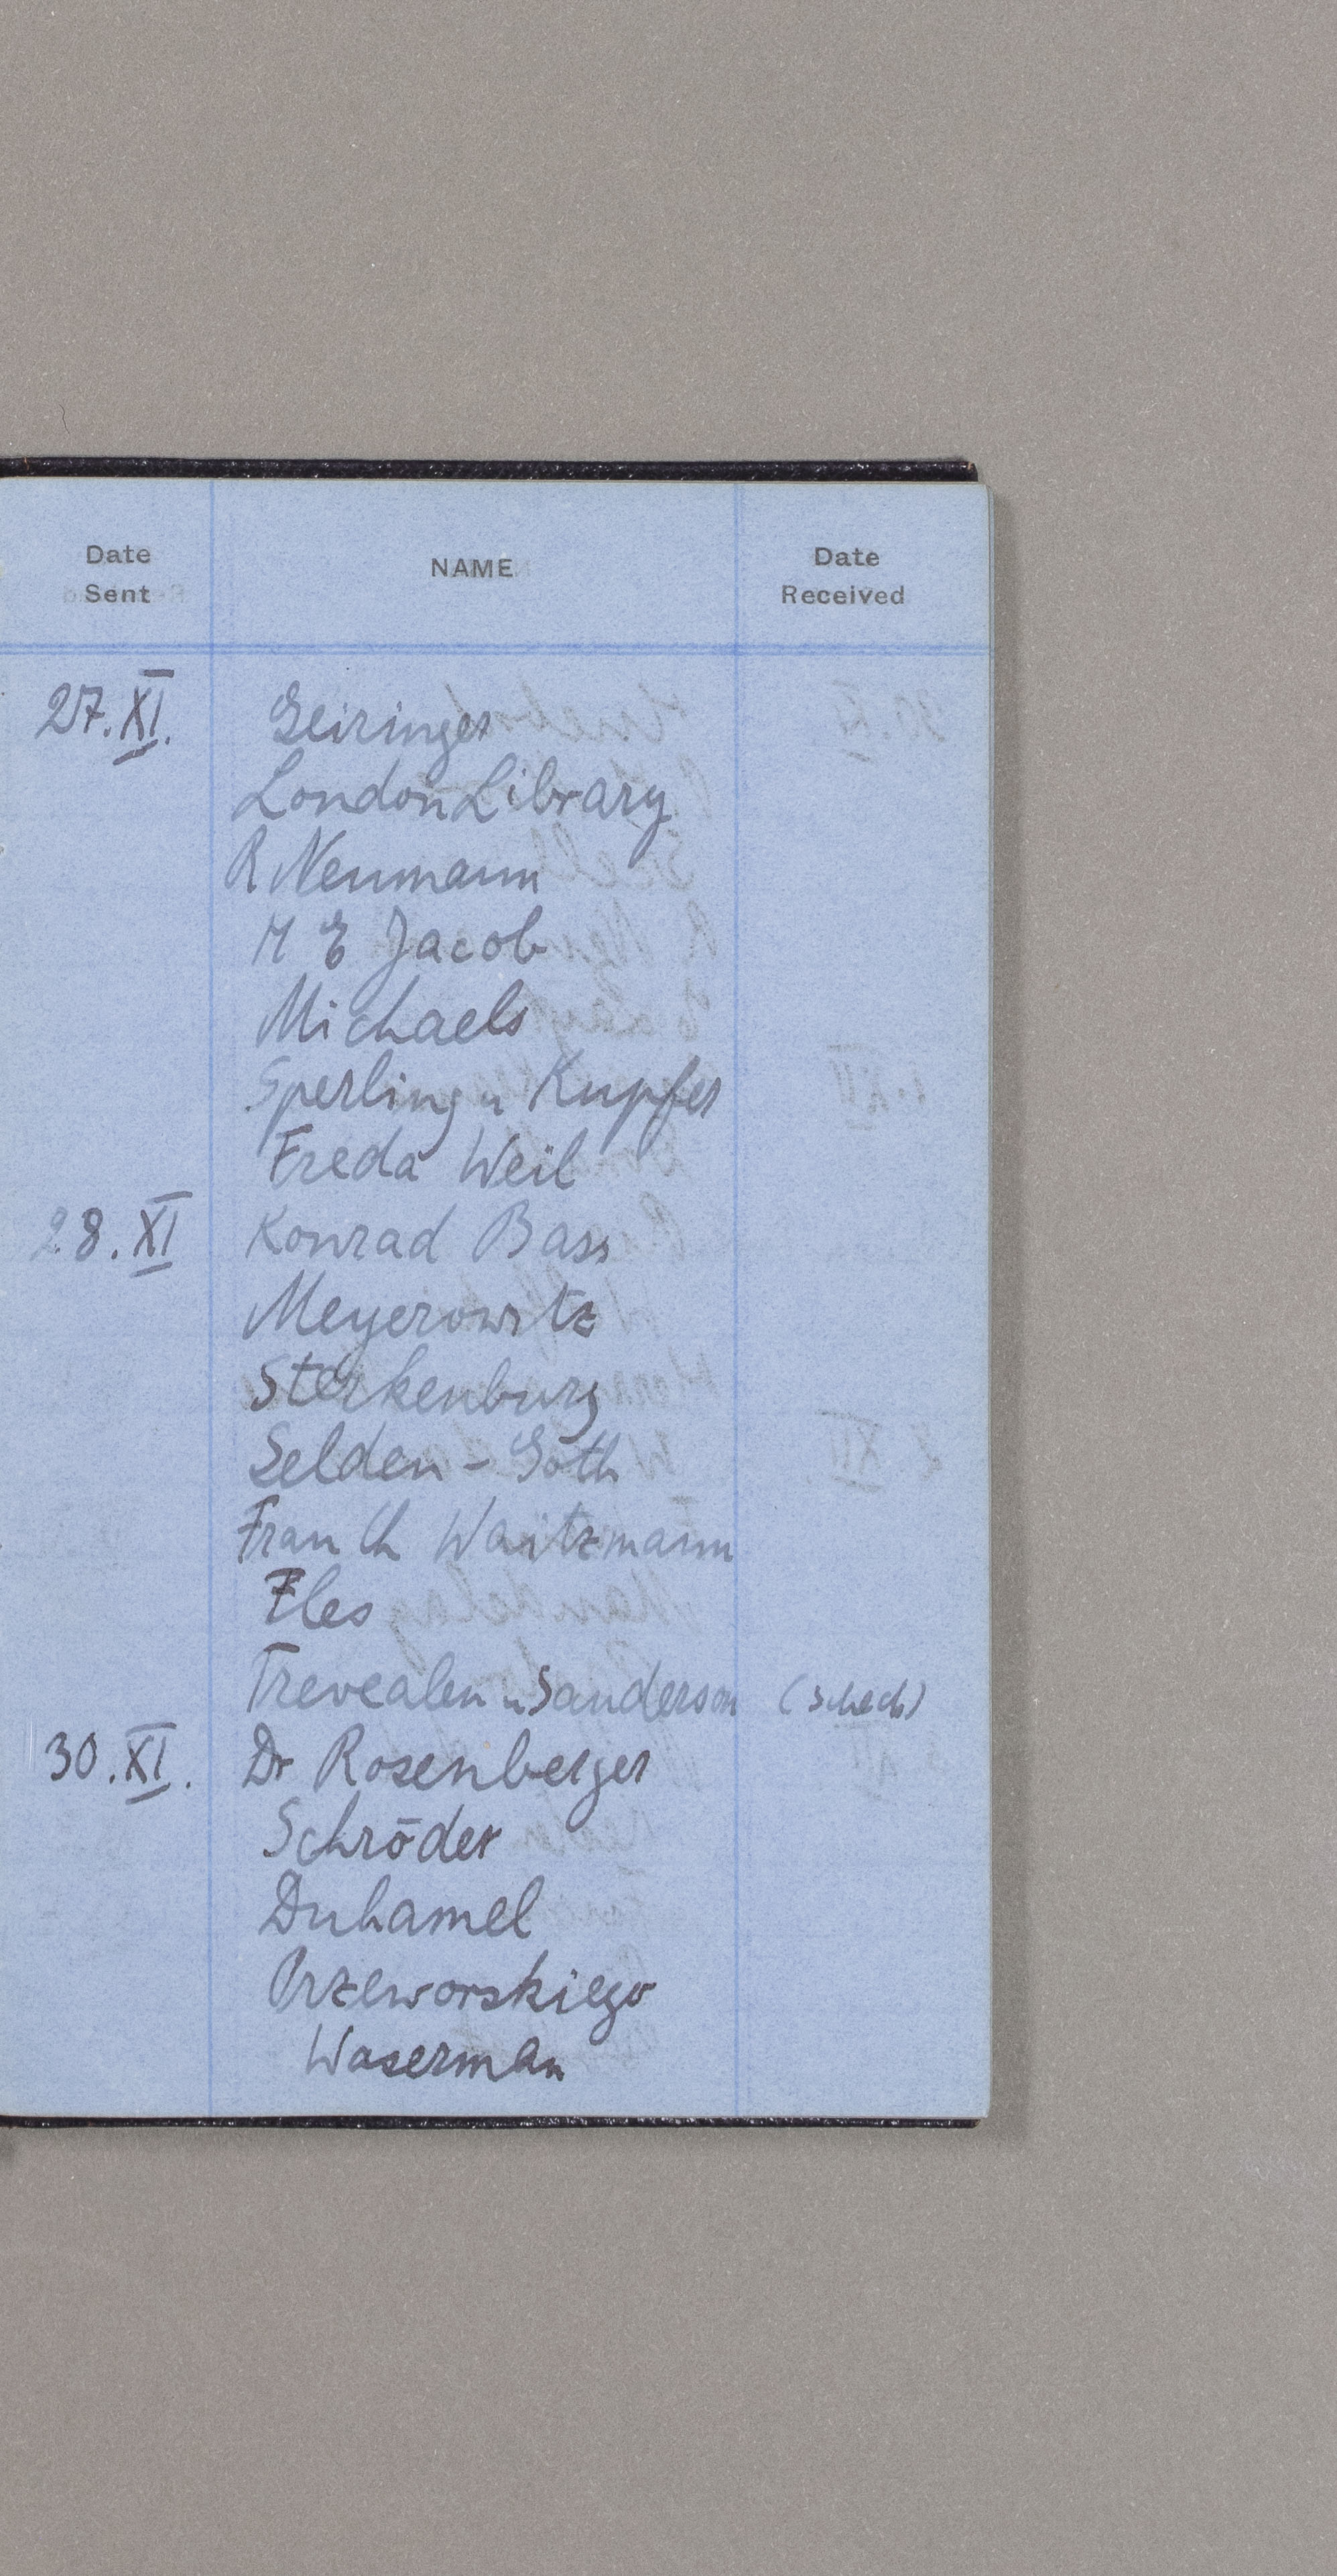 Date Sent NAME Date Received
27.XI. Geiringer
London Library
R Neumann
H E Jacob
Michaels
Sperling u Kupfer
Freda Weil
28.XI Konrad Bass
Meyerowitz
Sterkenburg
Selden-Goth
Frau Ch Waitzmann
Fles
Trevealen u Sanderson (Scheck)
30.XI. Dr Rosenberger
Schröder
Duhamel
Przeworskiego
Waserman